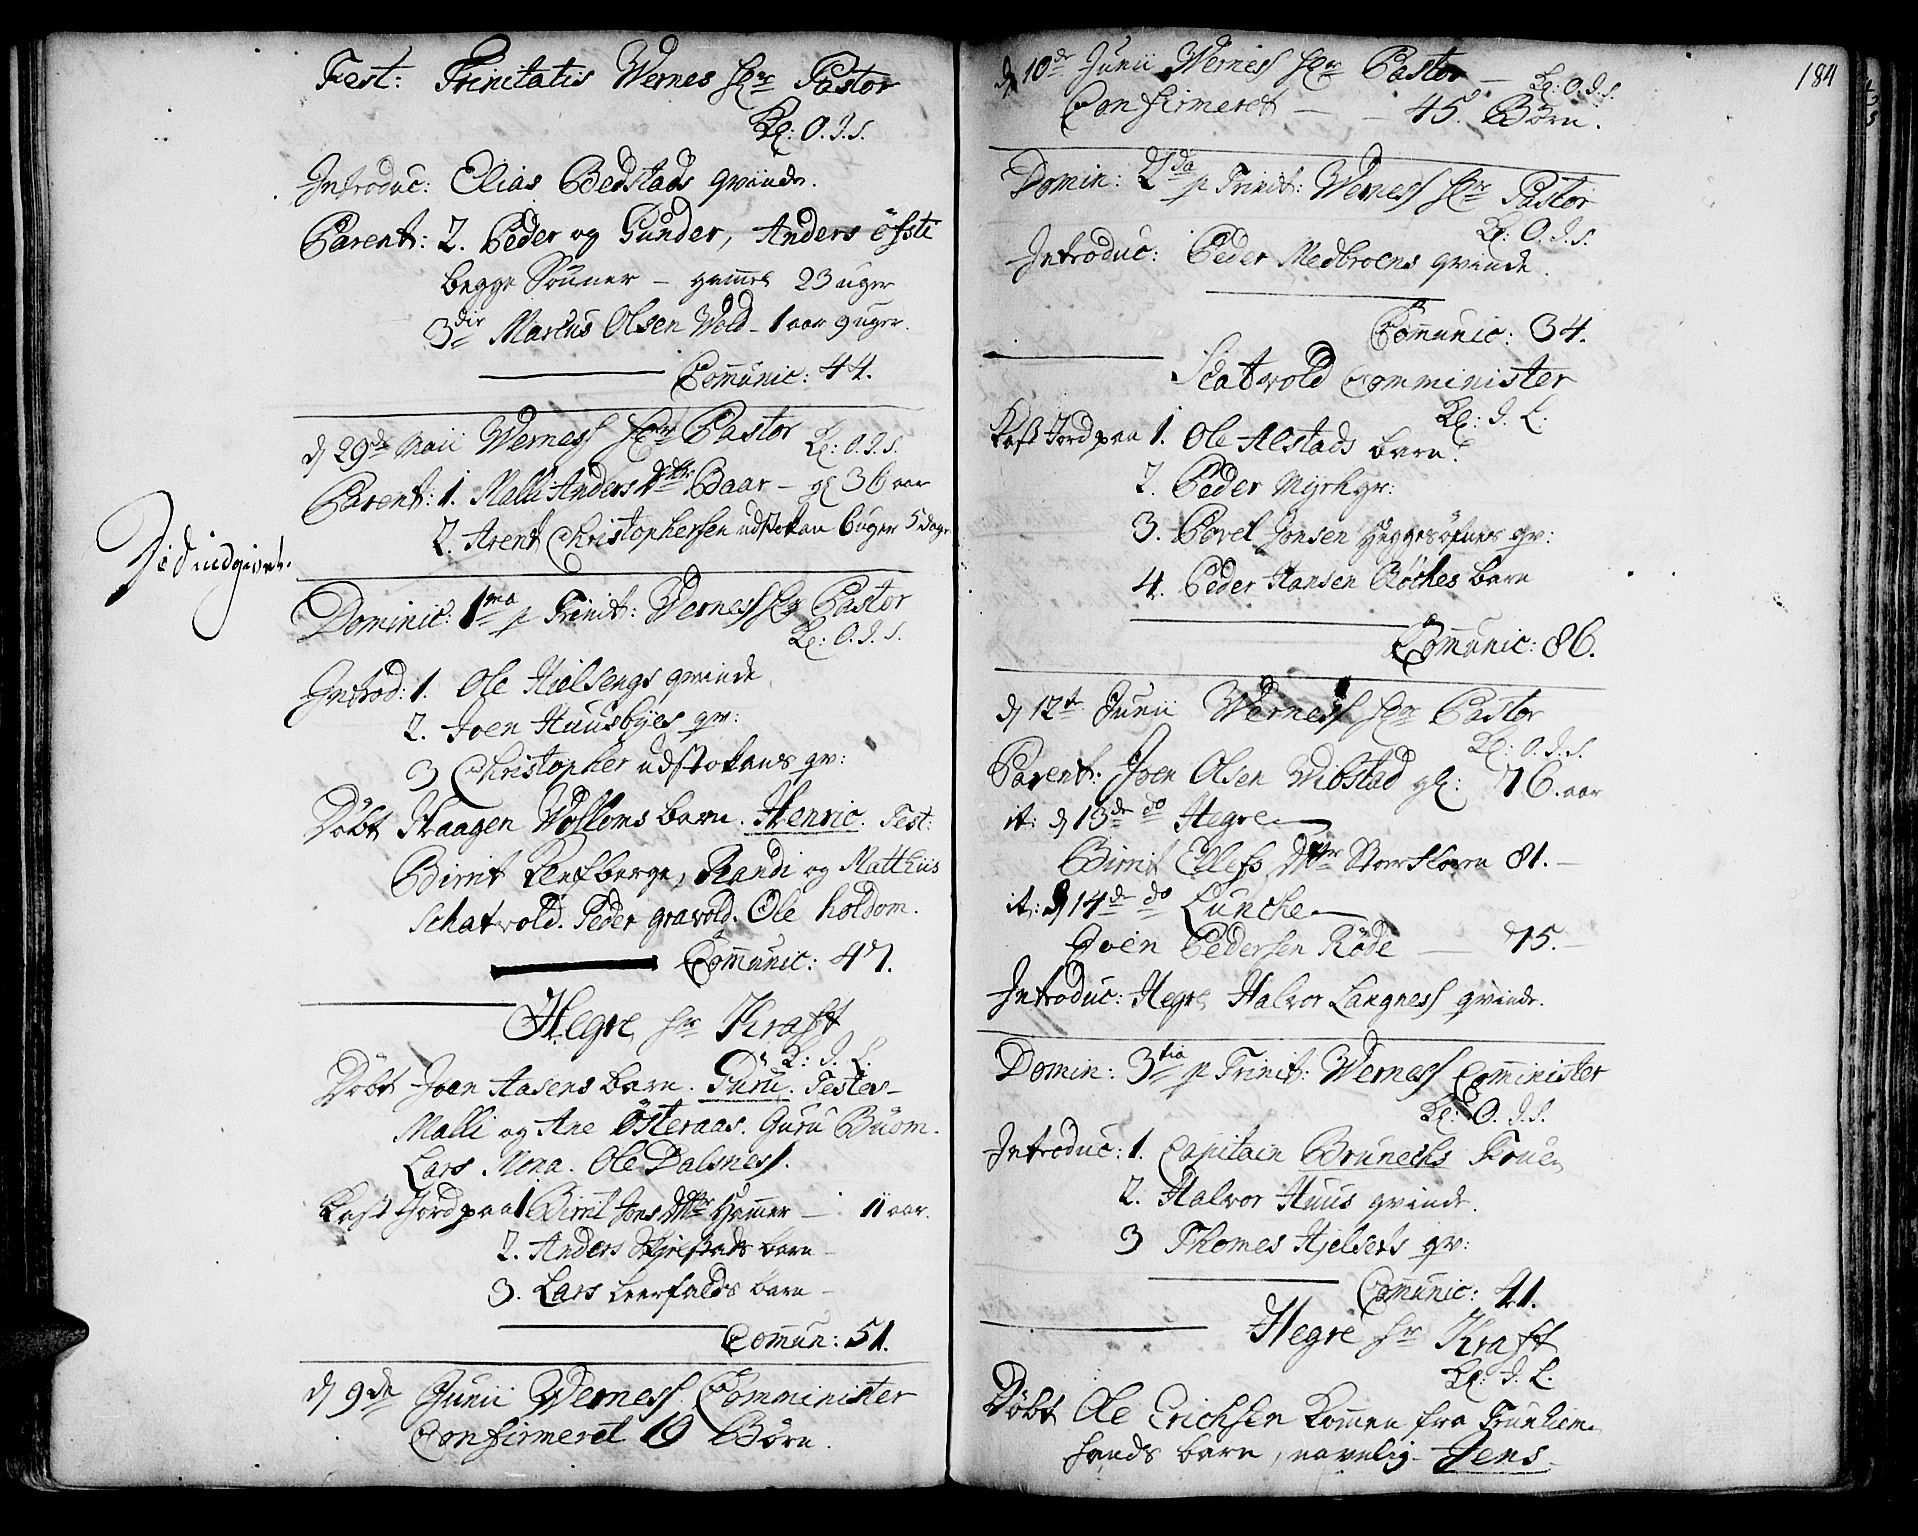 Fest: Trinitatis Wernes Hr Pastor
Kl: O. I. S.
Introduc: Elias Bedstads qvinde.
Parent: 2. Peder og Gunder, Anders öfsti
begge Sönner – gammel 23 uger
3die Marcus Olsen Wold – 1 aar 9 uger.
Communic: 44.
d 29de Maii Werness Hr Pastor
Kl: O. I. S.
Parent: 1. Malli Anders dttr Baar – gl 36 aar
2. Arent Christophersen udstokan 6 uger 5 dage
Tid indgivet.
Dominic: 1ma p Trinit: Werness Hr Pastor
Kl: O. I. S.
Introd: 1. Ole Hielsengs qvinde
2. Joen Huusbyes qv:
3 Christopher udstokans qv:
Döbt Haagen Wollems barn. Henric. Test:
Birrit, Randi og Matthias
Schatvold. Peder gravold. Ole holdom.
Communic: 47.
Hegre Hr Kraft
K: I. L.
Döbt Joen Aasens barn. Guru. Testes –
Malli og Ane Österaas. Guru Buom.
Lars Mona. Ole Dalsness.
Kast Jord paa 1 Birrit Jons Dttr Hammer – 11 aar.
2. Anders barn –
3. Lars Leerfalds barn –
Commun: 51.
d 9de Junii Werness Comminister
Confirmeret 19 Börn.
184
d 10de Junii Werness Hr Pastor –
Kl: O. I. S.
Confirmeret – – 45. Börn.
Domin: 2da p Trinit: Werness Hr Pastor
Kl: O. I. S.
Introduc: Peder Medbroens qvinde.
Communic: 34.
Schatvold Comminister
Kl: I. L.
Kast Jord paa 1. Ole Alstads barn.
2. Peder Myrh gv:
3. Povel Jonsen Heggesöfnes gv:
4. Peder Hansen Röches barn
Communic: 86.
d 12te Junii Werness Hr Pastor
Kl: O. I. S.
Parent: Joen Olsen Wibstad gl: 76. aar
it: d 13de do Hegre
Birrit Ellefs Dttr Storkloven 81. –
it: d 14de do Luncke
Joen Pedersen Röde – 75. –
Introduc: Hegre Halvor Langness qvinde.
Domin: 3tia p Trinit: Werness Comminister
Kl: O. I. S.
Introduc: 1. Capitain Brunechs Frue
2. Halvor Huus qvinde.
3 Thomes Hjelsets qv:
Communic: 41.
Hegre Hr Kraft
Kl: I. L.
Döbt Ole Erichsen kommen fra Trunhiem
barn, navnlig – Jens –